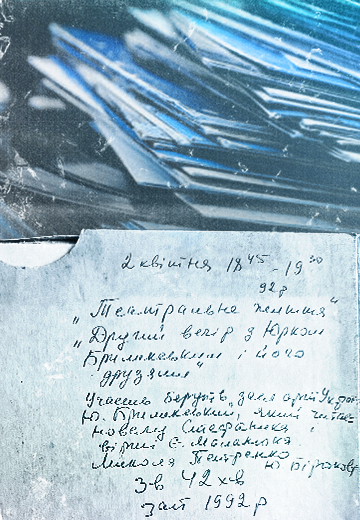 2 квітня 18⁴⁵ - 19³⁰
92р
"Театральне
"Другий вечір з Юрком
Брилинським і його
друзями"
Участь беруть засл арт Укр
Ю. Брилинський, який читає
новелу Стефаника,
вірші Є. Маланюка
Микола Петренко Ю
зв 42 хв
зап 1992 р